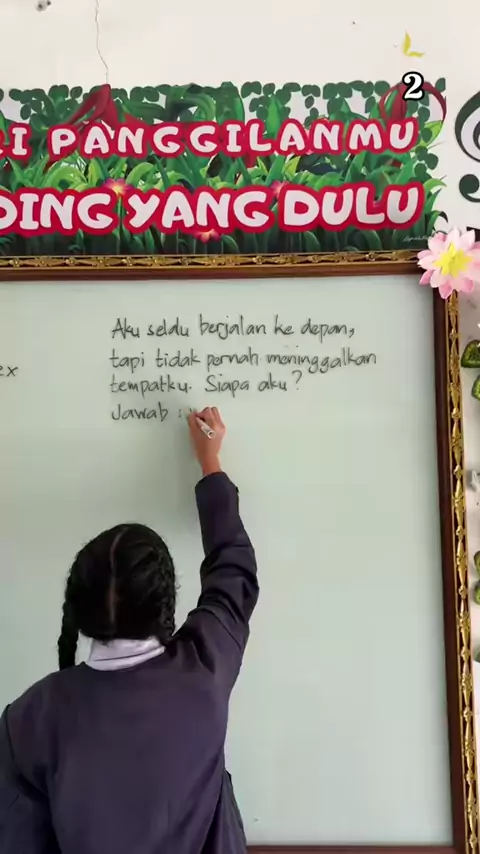 2
I PANGGILANMU
DING YANG DULU
Aku seldu berjalan ke depan,
tapi tidak pernah meninggalkan
tempatku. Siapa aku?
Jawab :
ex